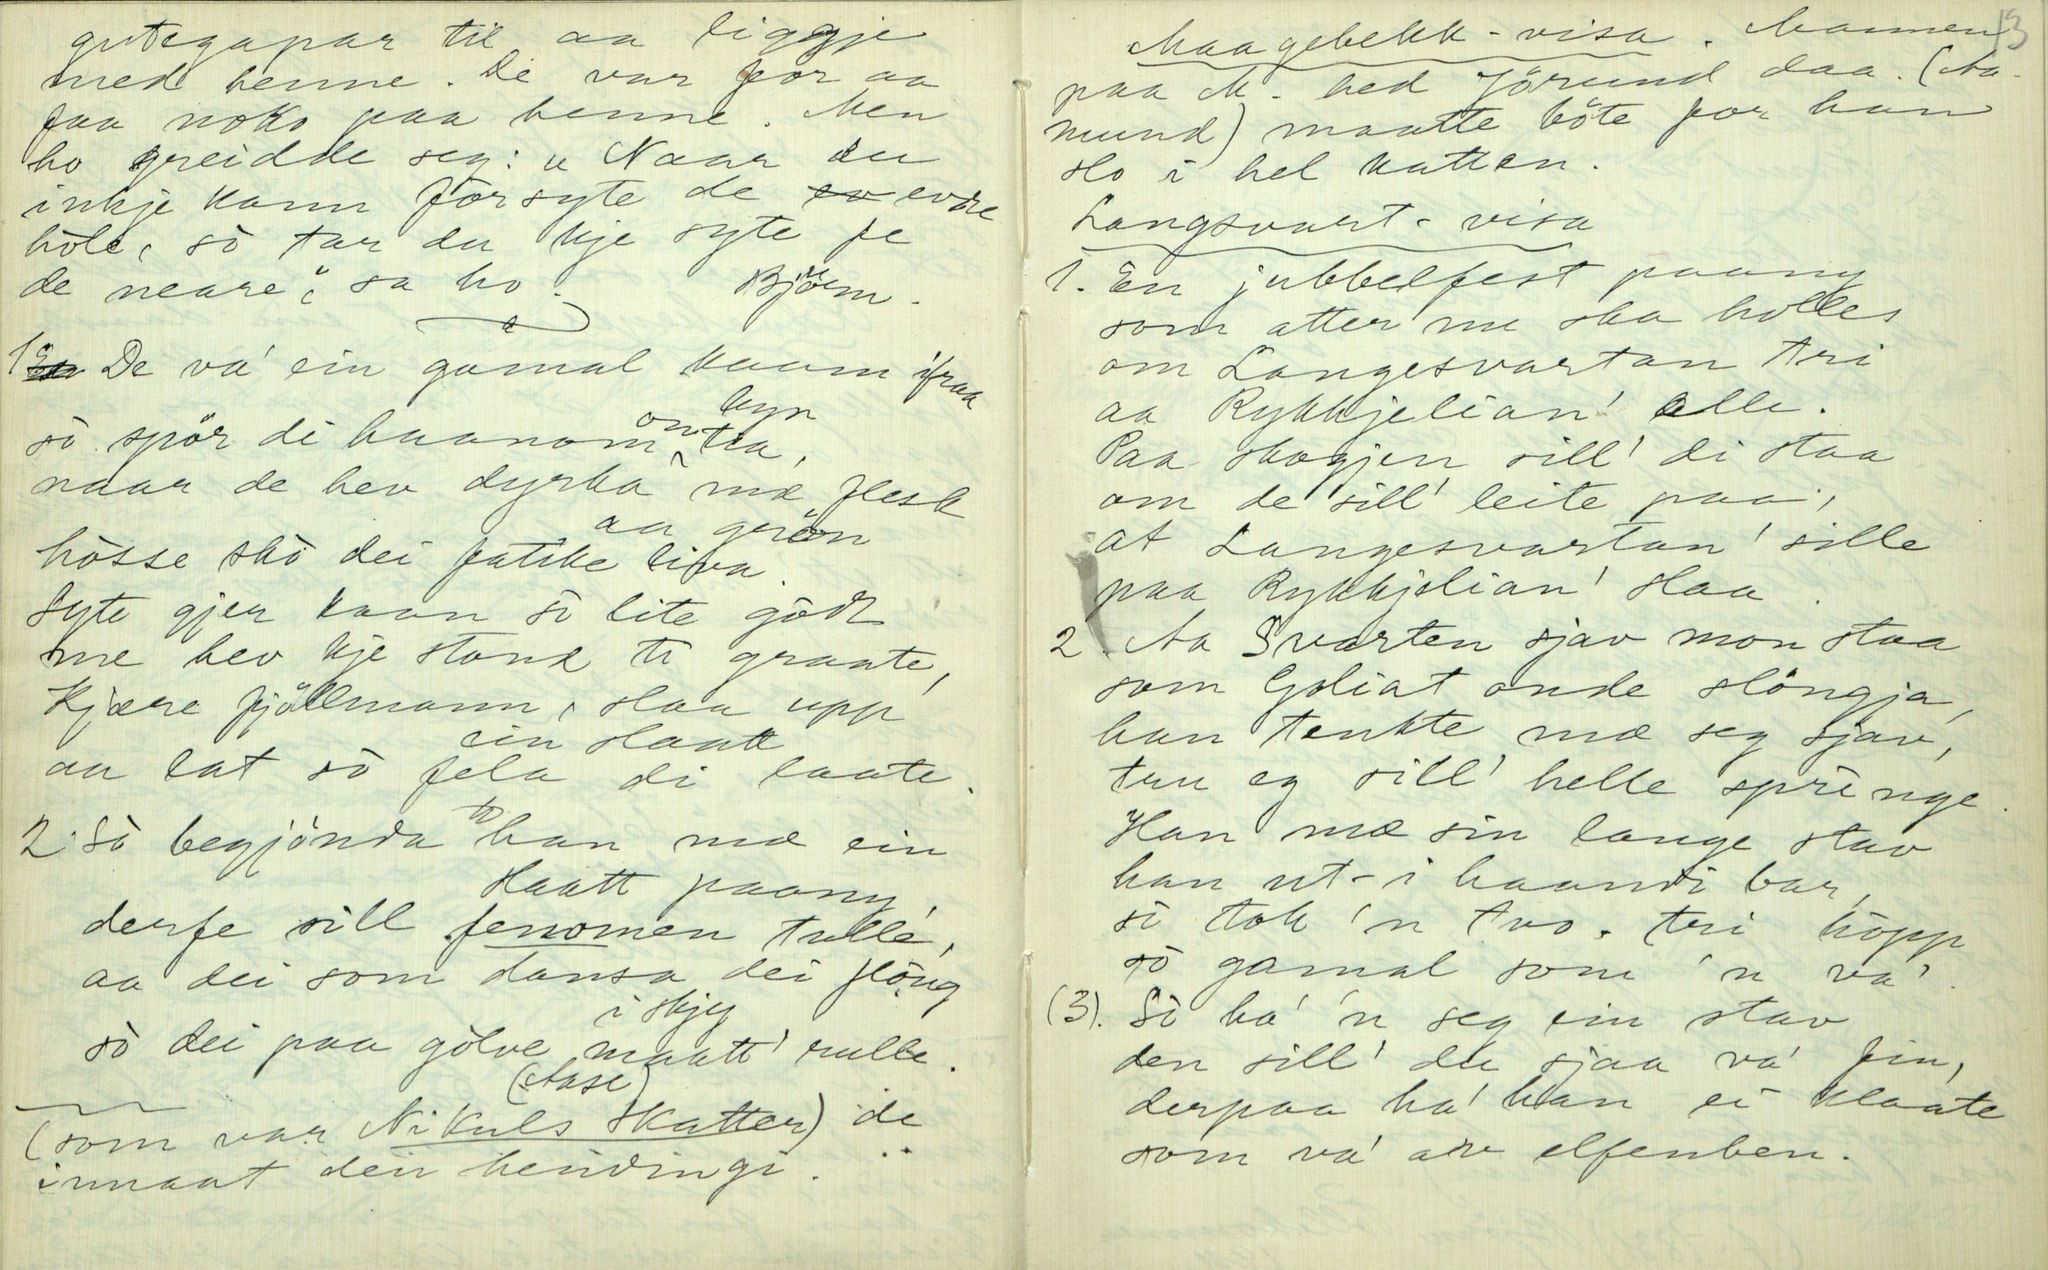 gutegapar til aa liggje
med henne. De var for aa
faa noko paa henne. Men
ho greidde seg: "Naar du
inkje kann försyte de evre
hòle, sò tar du kje syte fe
de neare", sa ho. Björn.
1. De va' ein gamal kaam ifraa
byn
sò spör di haanom om tia,
naar de hev dyrka mæ flesk
aa grön
hòsse skò dei fatike liva.
Syte gjer kaan sò lite godt
me hev kje stond ti graate,
Kjære fjöllmann, slaa upp
ein slaatt
aa lat sò fela di laate.
2. Sò begjönda han mæ ein
slaatt paany,
derfe sill fenomen tulle,
aa dei som dansa dei flöug
i skjy
sò dei paa gölve maatt' rulle.
(Aase)
(som var Nikuls Skatter) de
innaat den hendingi.
13
Maagebekk-visa. Mannen
paa M. hed Jörund daa. (Aa-
mund) maatte böte for han
slo i hel katten.
Langsvart-visa
1. En jubbelfest paany
som atter me ska holles
om Langesvartan tri
aa Rykkjelian' alle.
Paa skogjen sill' di staa
om de sill' leite paa,
at Langesvartan' sille
paa Rykkjelian' slaa.
2. Aa Svarten sjav mon staa
som Goliat onde slöngja,
han tenkte mæ seg sjav,
tru eg sill' helle springe.
Han mæ sin lange stav
han ut-i haandi bar,
sò tok 'n tvo. tri hòpp
sò gamal som 'n va'.
(3). Sò ha' 'n seg ein stav
den sill' du sjaa va' fin,
derpaa ha' han ei klaate
som va' av elfenben.